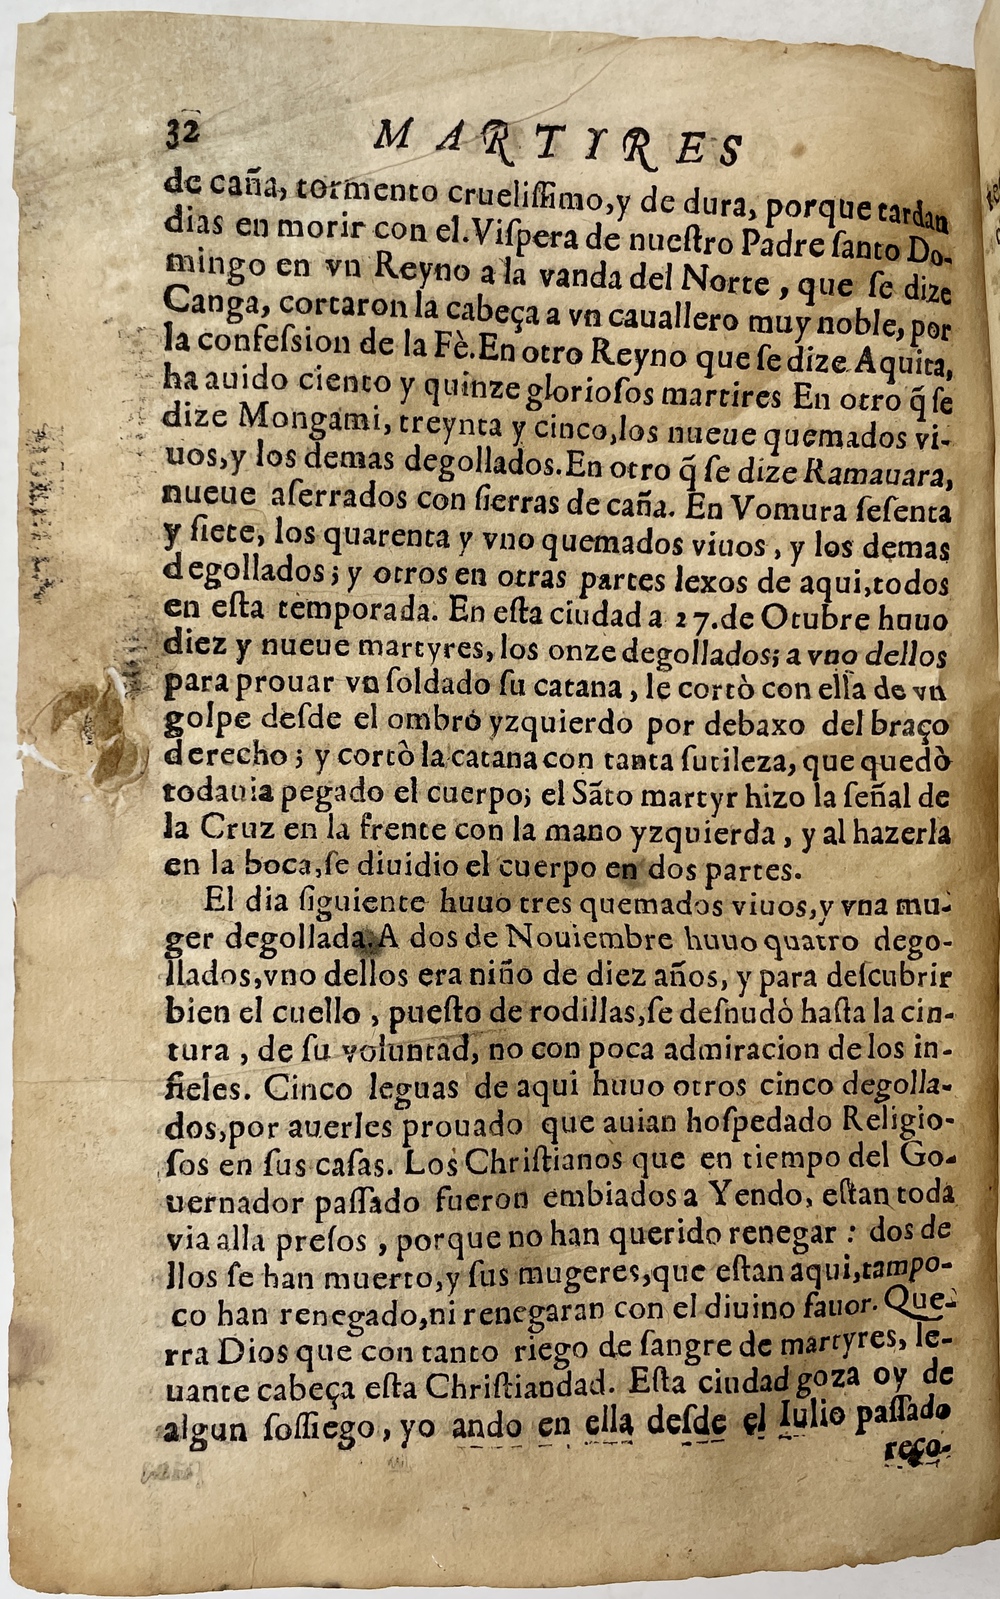 32 MARTIRES
de caña, tormento crueliſſimo,y de dura, porque tardan
dias en morir con el.Viſpera de nueſtro Padre ſanto Do-
mingo en vn Reyno a la vanda del Norte , que ſe dize
Canga, cortaron la cabeça a vn cauallero muy noble, por
la confeſsion de la Fè.En otro Reyno que ſe dize Aquita,
ha auido ciento y quinze glorioſos martires En otro q̃ ſe
dize Mongami, treynta y cinco,los nueue quemados vi-
uos,y los demas degollados.En otro q̃ ſe dize Ramauara,
nueue aſerrados con ſierras de caña. En Vomura ſeſenta
y ſiete, los quarenta y vno quemados viuos , y los demas
degollados; y otros en otras partes lexos de aqui,todos
en eſta temporada. En eſta ciudad a 27.de Otubre huuo
diez y nueue martyres, los onze degollados; a vno dellos
para prouar vn ſoldado ſu catana , le cortò con ella de vn
golpe deſde el ombro yzquierdo por debaxo del braço
derecho ; y cortò la catana con tanta ſutileza, que quedò
todauia pegado el cuerpo; el Sãto martyr hizo la ſeñal de
la Cruz en la frente con la mano yzquierda , y al hazerla
en la boca,ſe diuidio el cuerpo en dos partes.
El dia ſiguiente huuo tres quemados viuos,y vna mu-
ger degollada.A dos de Nouiembre huuo quatro dego-
llados,vno dellos era niño de diez años, y para deſcubrir
bien el cuello , pueſto de rodillas,ſe deſnudò haſta la cin-
tura , de ſu voluntad, no con poca admiracion de los in-
fieles. Cinco leguas de aqui huuo otros cinco degolla-
dos,por auerles prouado que auian hoſpedado Religio-
ſos en ſus caſas. Los Chriſtianos que en tiempo del Go-
uernador paſſado fueron embiados a Yendo, eſtan toda
via alla preſos , porque no han querido renegar : dos de
llos ſe han muerto,y ſus mugeres,que eſtan aqui,tampo-
co han renegado,ni renegaran con el diuino fauor. Que-
rra Dios que con tanto riego de ſangre de martyres, le-
uante cabeça eſta Chriſtiandad. Eſta ciudad goza oy de
algun ſoſſiego, yo ando en ella deſde el Iulio paſſado
reço-